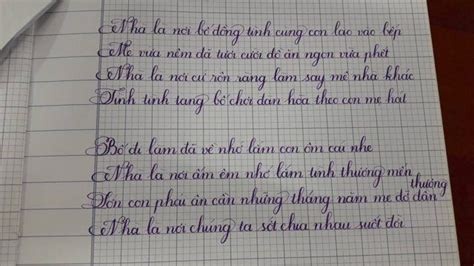 Nhà là nơi bố đồng tình cùng con lao vào bếp
Mẹ vừa nêm đã tươi cười đồ ăn ngon vừa phết
Nhà là nơi cứ rộn ràng làm say mê nhà khác
Tính tình tang bố chơi đàn hòa theo con mẹ hát
Bố đi làm đã về nhớ lắm con ôm cái nhé
Nhà là nơi ấm êm nhớ lắm tình thương mến thương
con phải ân cần những tháng năm mẹ đỡ đần
Nhà là nơi chúng ta sớt chia nhau suốt đời